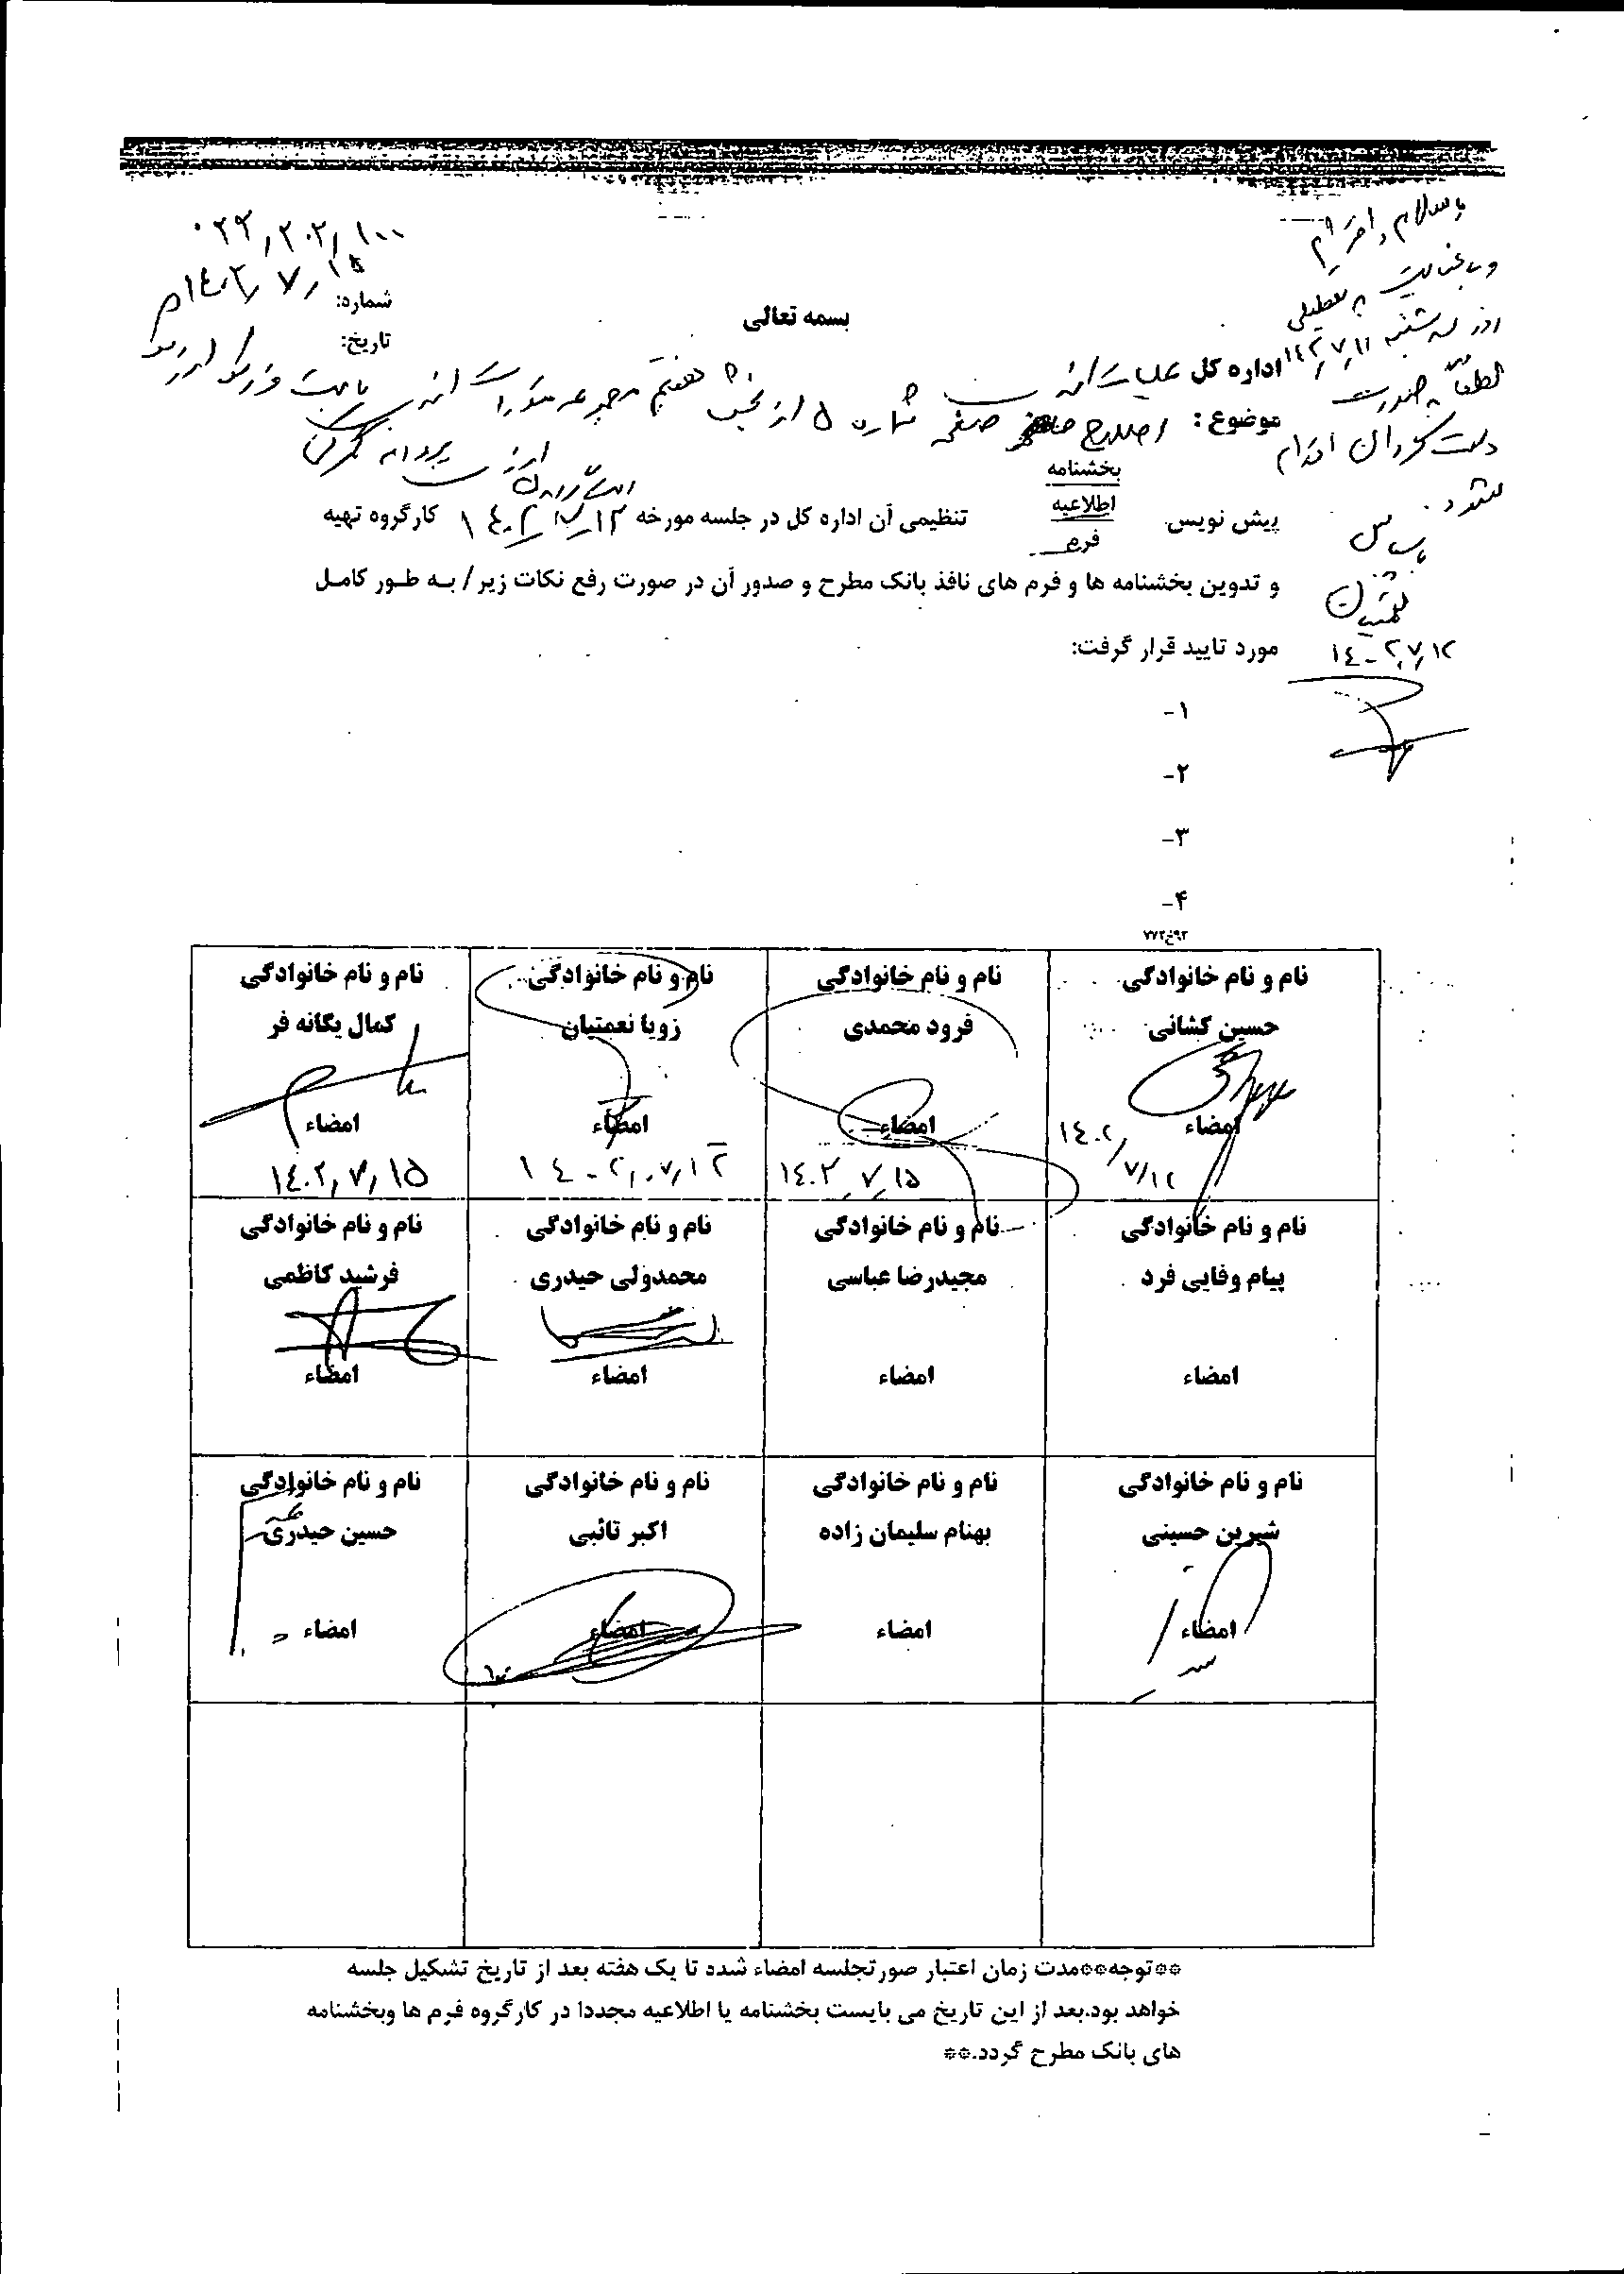 با سلام و احترام
و با عنایت به تعطیلی
روز سه شنبه ۱۴۰۲,۷,۱۱
لطفاً به صورت
دست گردان اقدام
شود.
با سپاس
نعمتیان
۱۴۰۲,۷,۱۲
۰۲۲,۲۰۲,۱۰۰
شماره:
۱۴۰۲,۷,۱۵
تاریخ:
بسمه تعالی
اداره کل عملیات ارزی
موضوع : اصلاح صفحه شماره ۵ از بخش هفتم مجموعه مقررات ارزی بابت
بخشنامه
اطلاعیه
فرم
پیش نویس تنظیمی آن اداره کل در جلسه مورخه ۱۴۰۲/۷/۱۲ کارگروه تهیه
و تدوین بخشنامه ها و فرم های نافذ بانک مطرح و صدور آن در صورت رفع نکات زیر/ به طور کامل
مورد تایید قرار گرفت:
۱-
۲-
۳-
۴-
۷۷۲خ۹۲
نام و نام خانوادگی نام و نام خانوادگی نام و نام خانوادگی نام و نام خانوادگی
حسین کشانی فرود محمدی زویا نعمتیان کمال یگانه فر
امضاء امضاء امضاء امضاء
۱۴۰۲/۷/۱۲ ۱۴۰۲,۷,۱۵ ۱۴۰۲,۰۷,۱۲ ۱۴۰۲,۷,۱۵
نام و نام خانوادگی نام و نام خانوادگی نام و نام خانوادگی نام و نام خانوادگی
پیام وفایی فرد مجیدرضا عباسی محمدولی حیدری فرشید کاظمی
امضاء امضاء امضاء امضاء
نام و نام خانوادگی نام و نام خانوادگی نام و نام خانوادگی نام و نام خانوادگی
شیرین حسینی بهنام سلیمان زاده اکبر تائبی حسین حیدری
امضاء امضاء امضاء امضاء
**توجه**مدت زمان اعتبار صورتجلسه امضاء شده تا یک هفته بعد از تاریخ تشکیل جلسه
خواهد بود.بعد از این تاریخ می بایست بخشنامه یا اطلاعیه مجددا در کارگروه فرم ها وبخشنامه
های بانک مطرح گردد.**